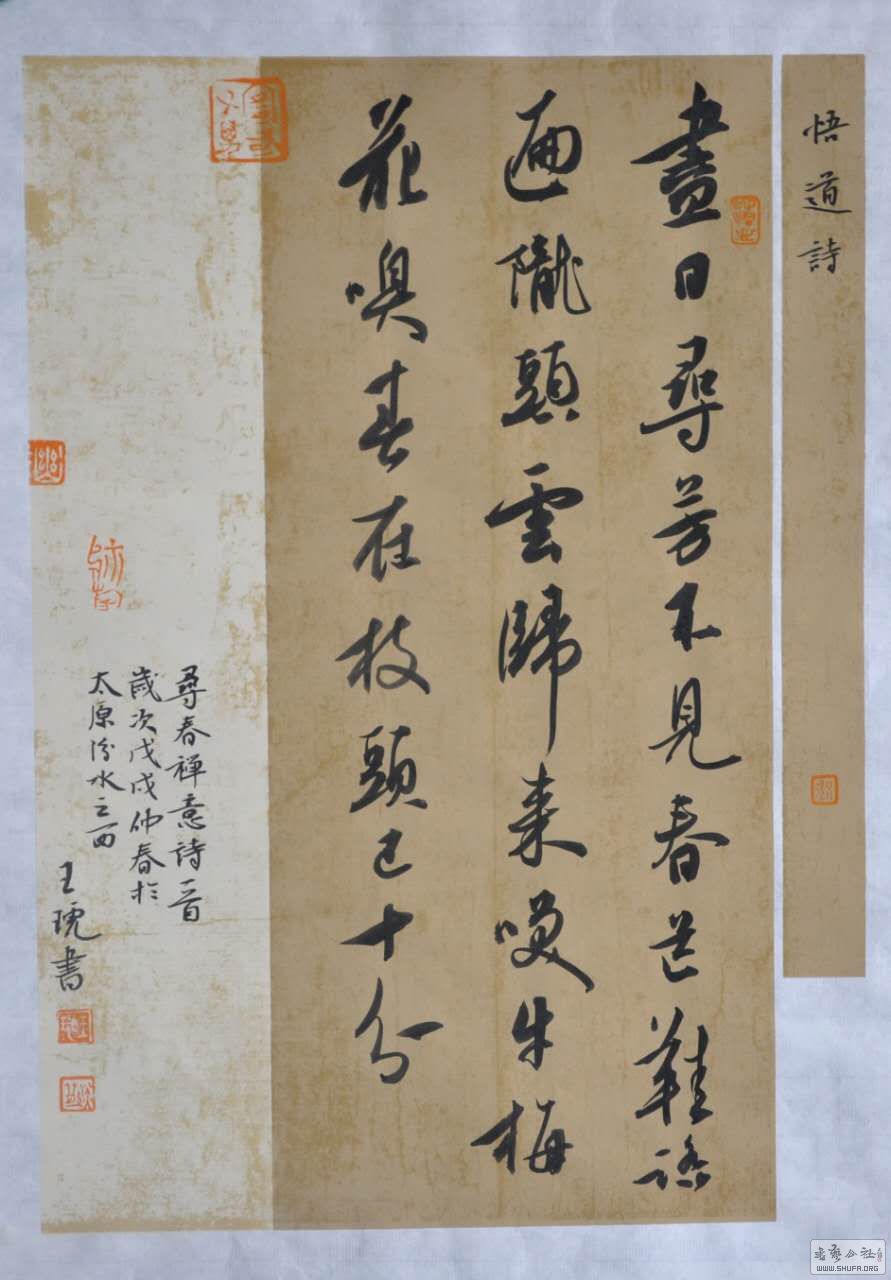 悟道詩
盡日尋芳不見春芒鞋踏
遍隴頭雲歸來咲梅
花嗅春在枝頭已十分
尋春禪意詩一首
歲次戊戌仲春於
太原汾水之西
王書
书艺公社
WWW.SHUFA.ORG